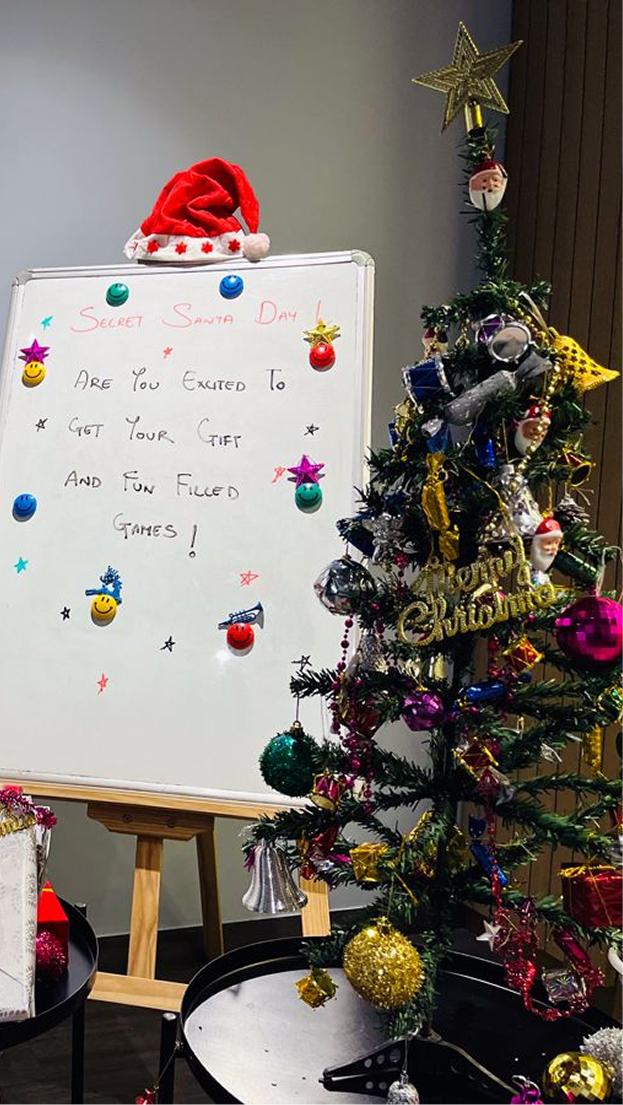 SECRET SANTA DAY !
ARE YOU EXCITED TO
GET YOUR GIFT
AND FUN FILLED
GAMES !
Merry
Christmas